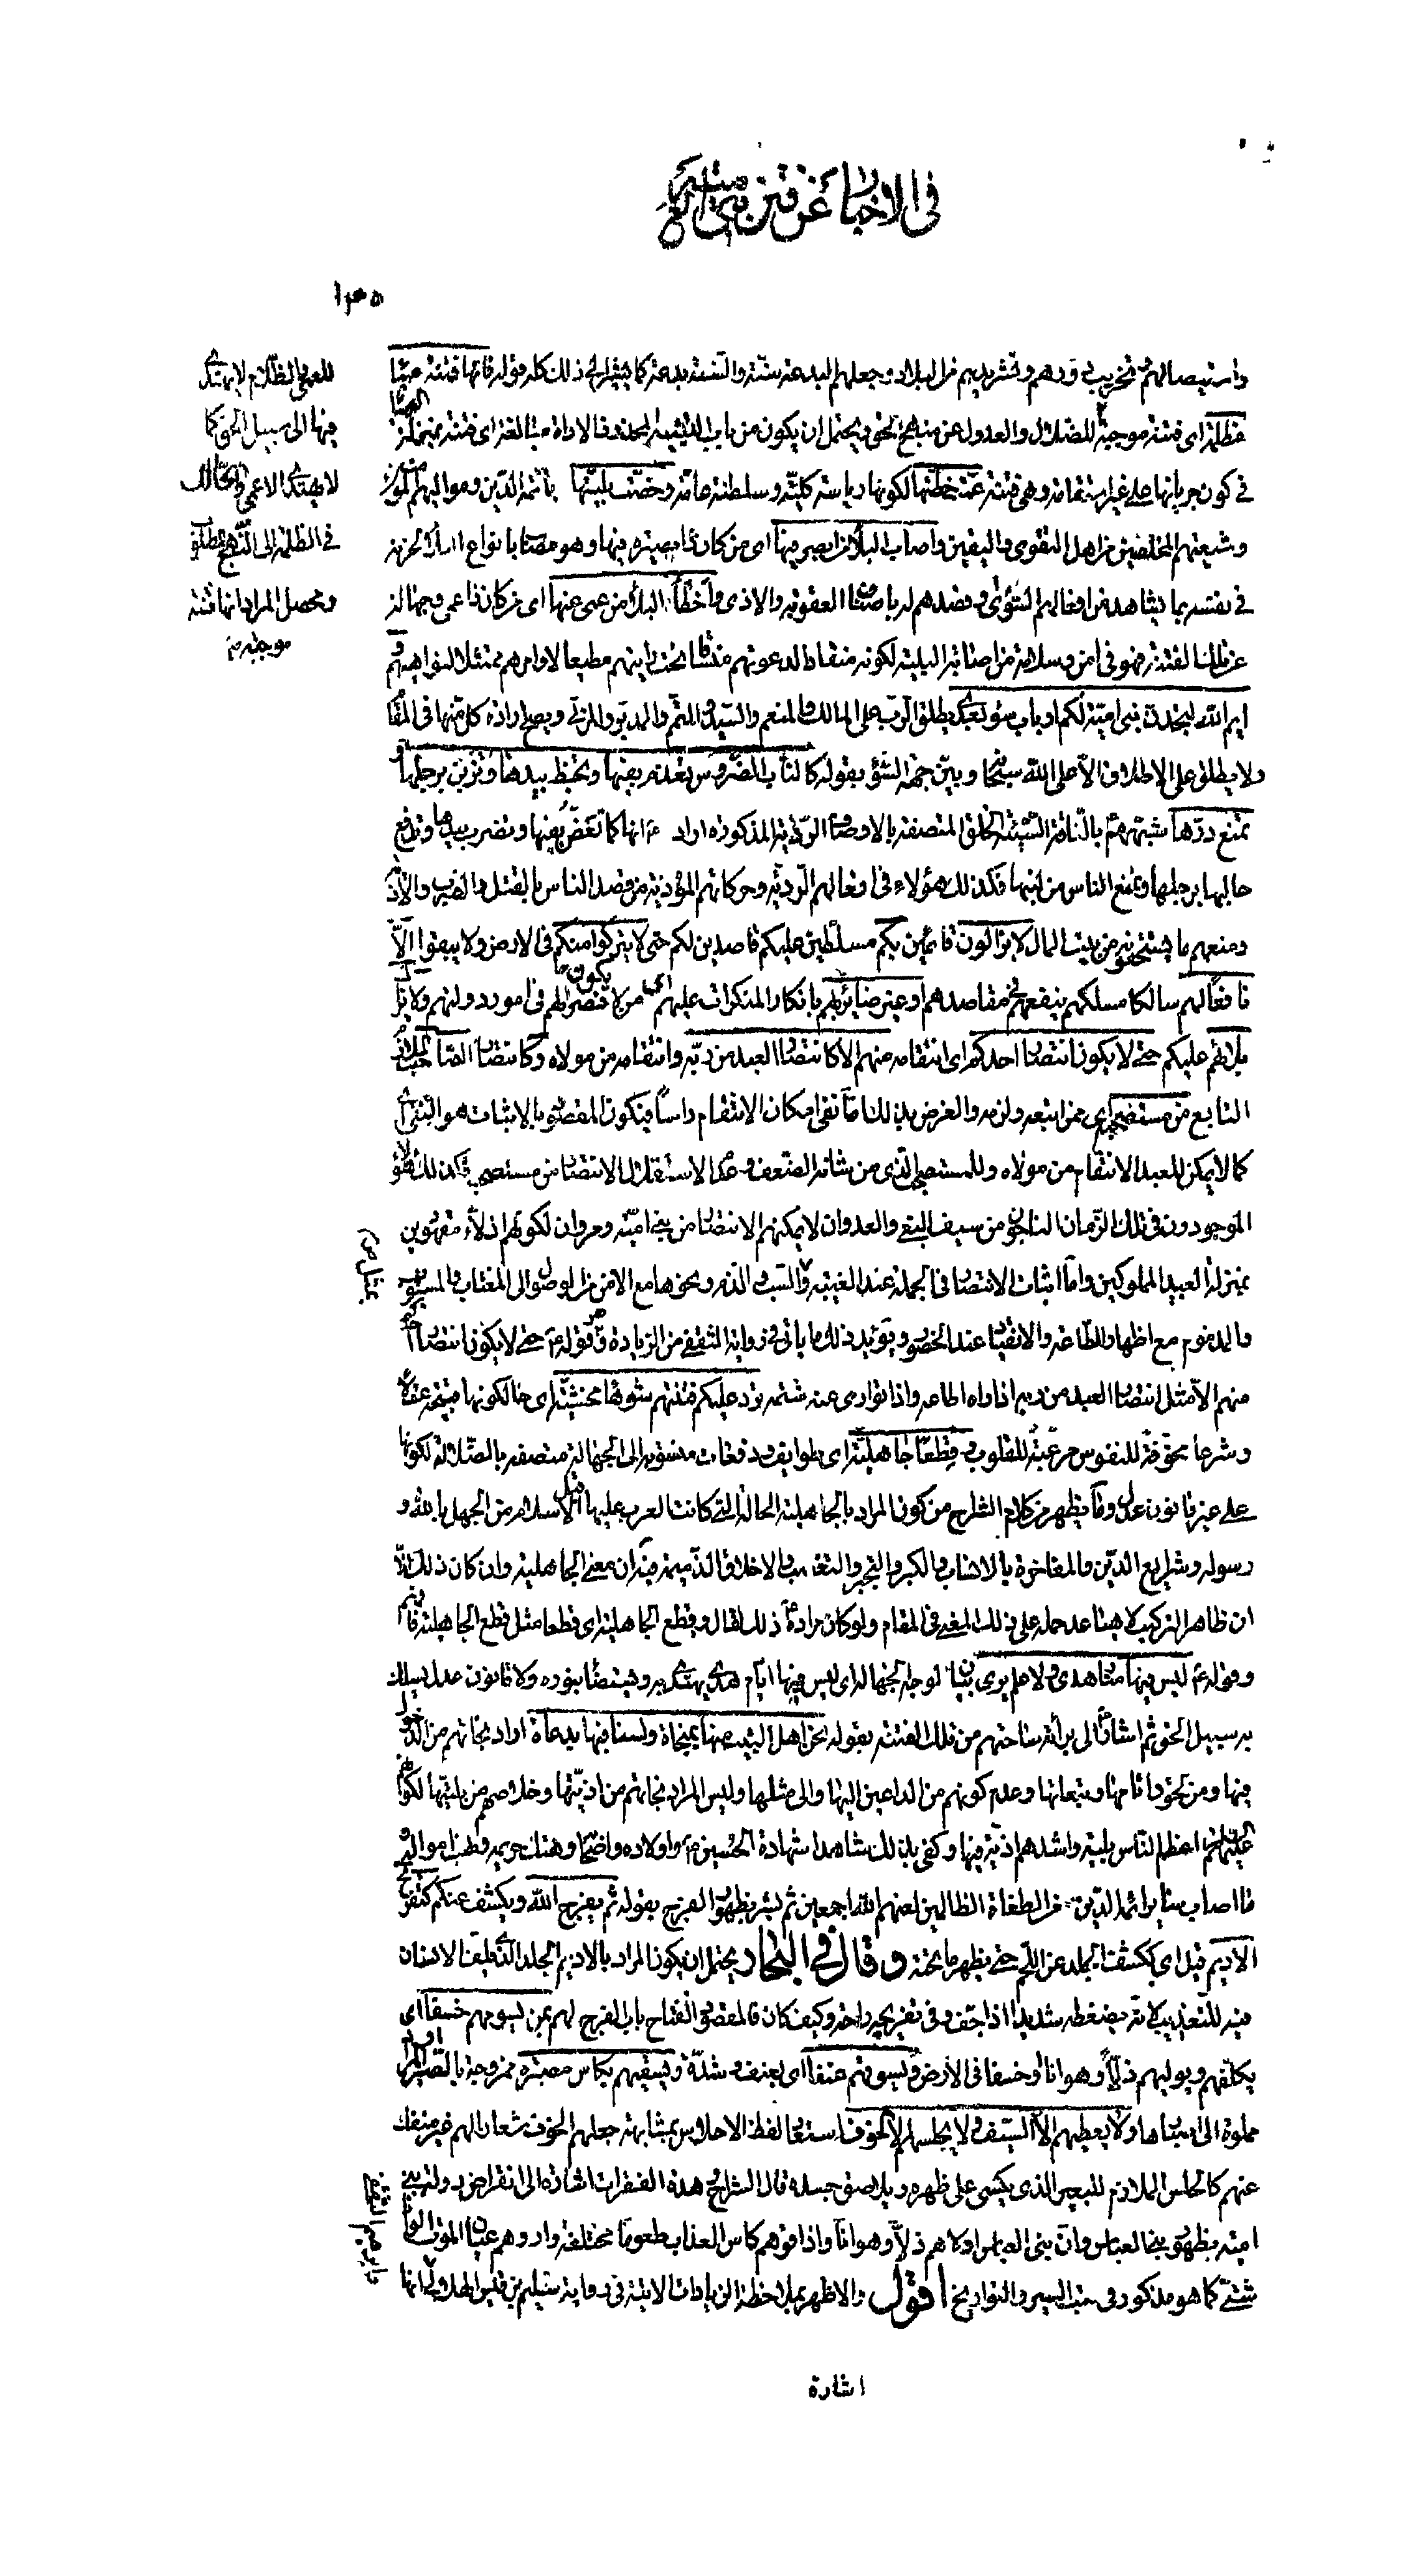 في الاخبار عن فتن بني امية
١٣٥
واستيصالهم وتخريب دورهم وتشريدهم من البلاد وجعلهم البدعة سنّة والسّنة بدعة كما يشير الى ذلك كله قوله فانّها فتنة عمياء
مظلمة اى فتنة موجبة للضلال والعدول عن منهج الحق ويحتمل ان يكون من باب التشبيه المحذوف الاداة مبالغة اى فتنة بمنزلة العمياء
في كون جريانها على غير استقامة وهي فتنة عمّت خطّتها لكونها رياسة كليّة وسلطنة عامّة وخصّت بليّتها بائمة الدّين ومواليهم المؤمنين
وشيعتهم المخلصين من اهل التقوى واليقين واصاب البلاء من ابصر فيها اى من كان ذا بصيرة فيها وهو مصاب بانواع البلاء لحزنه
في نفسه بما يشاهد من افعالهم السّوأى وقصدهم له باصناف العقوبة والاذى واخطأ البلاء من عمى عنها اى من كان ذا عمى وجهالة
عن تلك الفتنة فهو في امن وسلامة من اصابة البلية لكونه منقادا لدعوتهم منساقا تحت رايتهم مطيعا لاوامرهم ممتثلا لنواهيهم و
ايم الله لتجدنّ بني اميّة لكم ارباب سوء بعدى يطلق الربّ على المالك والمنعم والسّيد والمتمّم والمدبّر والمربّي ويصحّ ارادة كلّ منها في المقام
ولا يطلق على الاطلاق الّا على الله سبحانه وبيّن جهة السّوء بقوله كالنّاب الضّروس تعذم بفيها وتخبط بيدها وتزبن برجلها و
تمنع درّها شبّههم بالنّاقة السّيئة الخلق المتصفة بالاوصاف الرّديّة المذكورة اراد انها كما تعضّ بفيها وتضرب بيدها وتدفع
حالبها برجلها وتمنع الناس من لبنها فكذلك هؤلاء في افعالهم الرّديّة وحركاتهم المؤذية من قصد الناس بالقتل والضرب والاذى
ومنعهم ما يستحقّونه من بيت المال لا يزالون قائمين بكم مسلّطين عليكم قاصدين لكم حتى لا يتركوا منكم في الارض ولا يبقوا الّا
نافعا لهم سالكا مسلكهم ينفعهم في مقاصدهم او غير ضائر بهم بانكار المنكرات عليهم اى من لا يكون مضرا لهم في امور دولتهم ولا يزال
بلاؤهم عليكم حتى لا يكون انتصار احدكم اى انتقامه منهم الّا كانتصار العبد من ربّه وانتقامه من مولاه وكانتصار الصّاحب
التابع من مستصحبه اى ممن اتبعه ولزمه والغرض بذلك امّا نفى امكان الانتقام رأسا فيكون المقصود بالاثبات هو النّفى اى
كما لا يمكن للعبد الانتقام من مولاه وللمستصحب الّذى من شأنه الضعف وعدم الاستقلال الانتصار من مستصحبه فكذلك هؤلاء
الموجودون في تلك الزمان الناجون من سيف البغى والعدوان لا يمكنهم الانتصار من بني اميّة ومروان لكونهم اذلّاء مقهورين
بمنزلة العبيد المملوكين وامّا اثبات الانتصار في الجملة عند الغيبة والسّب والذم ونحوها مع الامن من الوصول الى المغتاب والمسبوب
والمذموم مع اظهار الطّاعة والانقياد عند الحضور ويؤيد ذلك ما يأتي في رواية الثقفي من الزيادة وهو قوله حتى لا يكون انتصار احدكم
منهم الّا مثل انتصار العبد من ربه اذا راه اطاعه واذا توارى عنه شتمه ترد عليكم فتنتهم شوهاء مخشيّة اى حالكونها قبيحة عقلا
وشرعا مخوّفة للنفوس مرعبة للقلوب وقطعا جاهليّة اى طوايف ودفعات منسوبة الى الجهالة متصفة بالضّلالة لكونها
على غير قانون عدل وما يظهر من كلام الشارح من كون المراد بالجاهلية الحالة التى كانت العرب عليها قبل الاسلام من الجهل بالله و
رسوله وشرايع الدّين والمفاخرة بالانساب والكبر والتجبر والتعصّب والاخلاق الذّميمة فيه ان معنى الجاهلية وان كان ذلك الّا
ان ظاهر التركيب لا يساعد حمله على ذلك المعنى في المقام ولو كان مراده ذلك لقال وقطع الجاهلية اى قطعا مثل قطع الجاهلية فافهم
وقوله ليس فيها منار هدى ولا علم يرى بيان لوجه الجهالة اى ليس فيها امام هدى يهتدى به ويستضاء بنوره ولا قانون عدل يسلك
به سبيل الحق ثم اشار الى برائة ساحتهم من تلك الفتنة بقوله نحن اهل البيت منها بمنجاة ولسنا فيها بدعاة اراد نجاتهم من الدخول
فيها ومن لحوق اثامها وتبعاتها وعدم كونهم من الداعين اليها والى مثلها وليس المراد نجاتهم من اذيّتها وخلاصهم من بليّتها لكونهم
اعظم النّاس بلية واشدهم اذية فيها وكفى بذلك شاهدا شهادة الحسين واولاده واصحابه وهتك حريمه ونهب امواله
ما اصاب ساير ائمة الدّين من الطغاة الظالمين لعنهم الله اجمعين ثم بشر بظهور الفرج بقوله ثم يفرج الله ويكشف عنكم كتفريج
الاديم قيل اى ككشف الجلد عن اللّحم حتى يظهر ما تحته وقال في البحار يحتمل ان يكون المراد بالاديم الجلد الذى يلفّ الانسان
فيه للتعذيب لانه يضغطه شديدا اذا جفّ وفي تفريجه راحة وكيف كان فالمقصود انفتاح باب الفرج لهم بمن يسومهم خسفا اى
يكلّفهم ويوليهم ذلّا وهوانا او خسفا في الارض ويسوقهم عنفا اى بعنف وشدّة ويسقيهم بكاس مصبّرة ممزوجة بالصّبر المرّ او
مملوة الى اصبارها ولا يعطيهم الّا السّيف ولا يحلسهم الّا الخوف استعار لفظ الاحلاس بمشابهة جعلهم الخوف شعارا لهم غير منفك
عنهم كالحلس الملازم للبعير الذى يكسى على ظهره ويلاصق جسده قال الشّراح هذه الفقرات اشارة الى انقراض دولة بني
اميّة بظهور بنى العباس وانّ بنى العباس اولاهم ذلّا وهوانا واذاقوهم كاس العذاب طعوما مختلفة واروهم عيان الموت الوانا
شتّى كما هو مذكور في كتب السير والتواريخ اقول والاظهر بملاحظة الزيادات الاتية في رواية سليم بن قيس الهلالي انها
للعمى الظّلام لا يهتدى
فيها الى سبيل الحق كما
لا يهتدى الاعمى والسّالك
في الظلمة الى النّهج المطلوب
ومحصل المراد انها فتنة
موجبة
اشارة